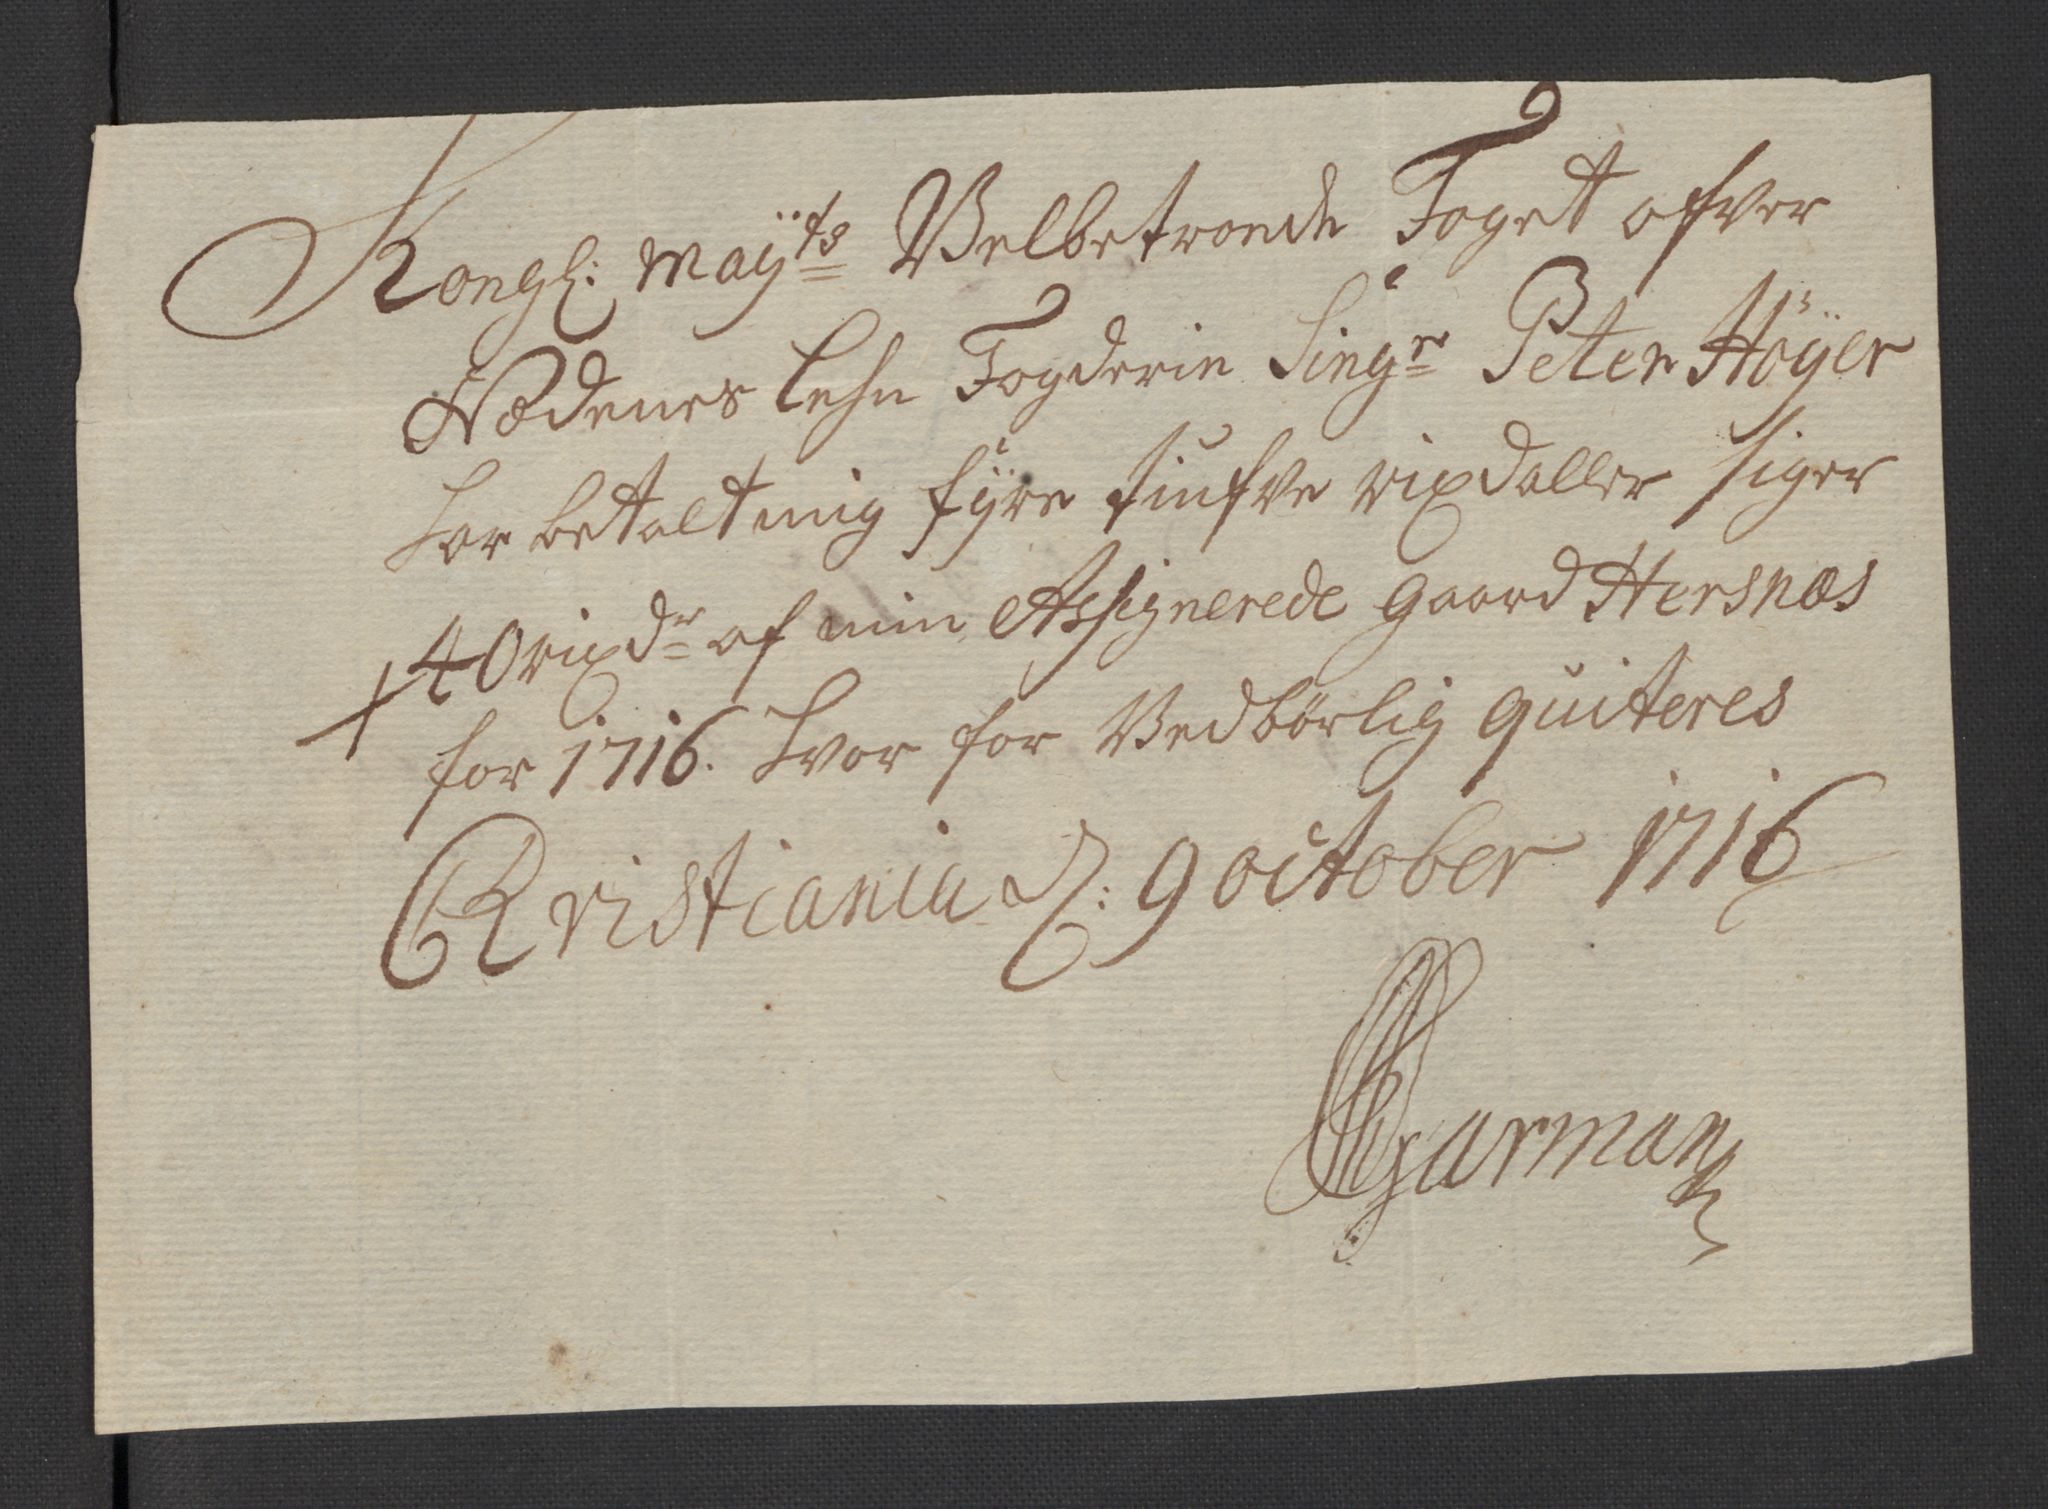 Kongl: Maÿts Velbetroede Foget ofver
Nedenes Lehn Fogderie Singr Peter Höÿer
har betalt mig fÿre tiufve rixdaller siger
+ 40 rixdr af min Assignerede gaard Hersnæs
for 1716. hvor for Vedbörlig quiteres
Christiania d: 9 october 1716
Garman